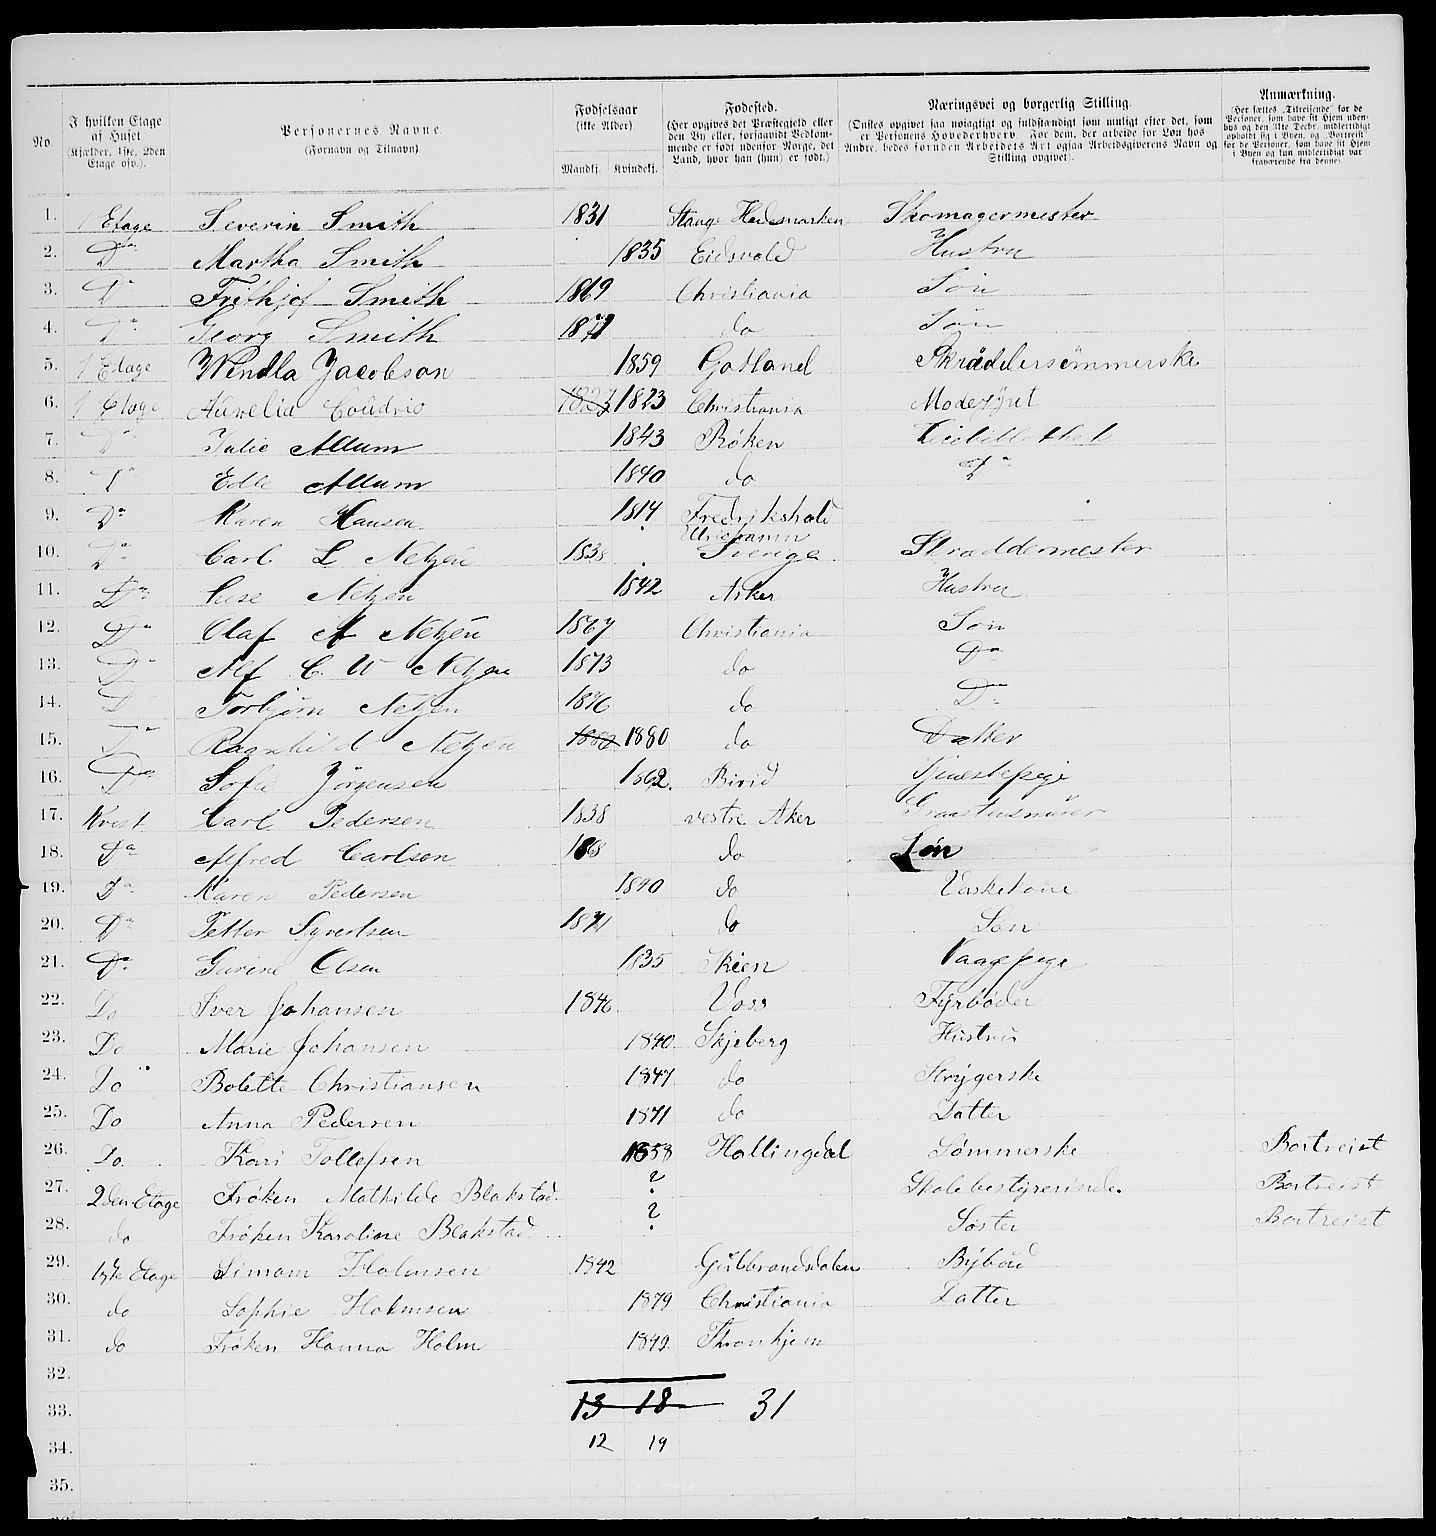 No.
I hvilken Etage af Huset (Kjælder, 1ste, 2den Etage osv.).
Personernes Navne. (Fornavn og Tilnavn)
Fødselsaar (ikke Alder)
Mandkj. Kvindekj.
Fødested. (Her opgives det Præstegjeld eller den By eller, forsaavidt Vedkommende er født udenfor Norge, det Land, hvor han (hun) er født.)
Næringsvei og borgerlig Stilling. (Ønskes opgivet saa nøiagtigt og fuldstændigt som muligt efter det, som er Personens Hovederhverv. For dem, der arbeide for Løn hos Andre, bedes foruden Arbeidets Art ogsaa Arbeidsgiverens Navn og Stilling opgivet).
Anmærkning. (Her sættes „Tilreisende" for de Personer, som have sit Hjem udenbys og den 31te Decbr. midlertidigt opholdt sig i Byen, og „Bortreist" for de Personer, som have sit Hjem i Byen og kun midlertidigt var fraværende fra denne)
1. 1 Etage Severin Smith 1831 Stange Hedemarken Skomagermester
2. Do Martha Smith 1835 Eidsvold Hustru
3. Do Frithjof Smith 1869 Christiania Søn
4. Do Georg Smith 1871 do Søn
5. 1 Etage Wendla Jacobson 1859 Gotland Skräddersömmerske
6. 1 Etage Aurelia 1823 1823 Christiania Modepynt
7. Do Julie Allum 1843 Røken
8. Do Edle Allum 1840 do Do
9. Do Karen Hansen 1814 Frederikshald
10. Do Carl L Netzén 1838 Ulricehamn Sverige Skræddermester
11. Do Netzén 1842 Aker Hustru
12. Do Olaf A Netzén 1867 Christiania Søn
13. Do Alf C. W Netzén 1873 do Do
14. Do Torbjørn Netzén 1876 do Do
15. Do Ragnhild Netzén 1880 1880 do Datter
16. Do Sofie Jörgensen 1862. Birid Tjenestepige
17. Kvist Carl Pedersen 1838 vestre Aker Graastensmurer
18. Do Alfred Carlsen 1868 do Søn
19. Do Karen Pedersen 1840 do Vaskekone
20. Do Petter Syvertsen 1871 do Søn
21. Do Gurine Olsen 1835 Skien Vaagepige
22. Do Iver Johansen 1846. Voss Fyrbøder
23. Do Marie Johansen 1840. Skjeberg Hustru
24. Do Bolette Christiansen 1847 do Strygerske
25. Do Anna Pedersen 1871 do Datter
26. Do. Kari Tollefsen 1858 Hallingdal Sømmerske Bortreist
27. 2den Etage Frøken Mathilde Blakstad. ? Skolebestyrerinde. Bortreist
28. do Frøken Karoline Blakstad ? Søster Bortreist
29. 1ste Etage Simam Holmsen 1842 Gulbrandsdalen Bybud
30. do Sophie Holmsen 1879 Christiania Datter
31. do Frøken Hanna Holm 1849. Thronhjem
32.
33. 13 18 31
34. 12 19
35.